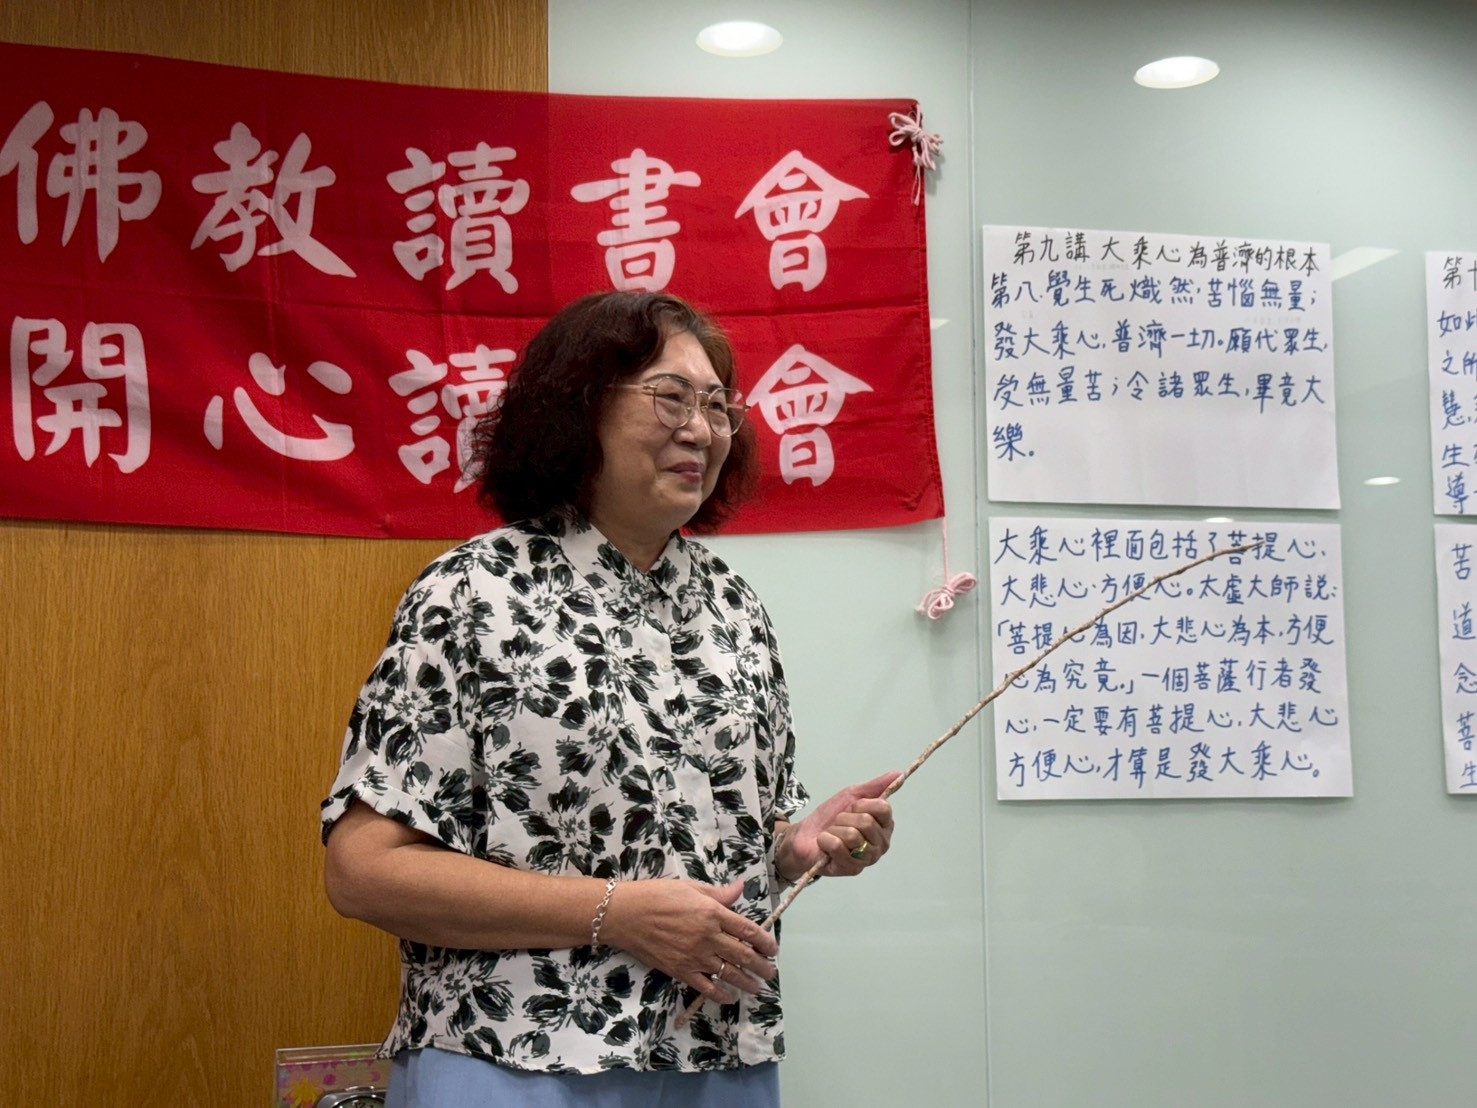 佛教讀書會
開心讀 會
第九講 大乘心為普濟的根本
第八、覺生死熾然,苦惱無量;
發大乘心,普濟一切。願代眾生,
受無量苦;令諸眾生,畢竟大
樂。
大乘心裡面包括了菩提心、
大悲心、方便心。太虛大師說:
「菩提心為因,大悲心為本,方便
心為究竟。」一個菩薩行者發
心,一定要有菩提心,大悲心
方便心,才算是發大乘心。
第十
如此
之所
慧,
生死
導
苦
道
念
菩
生